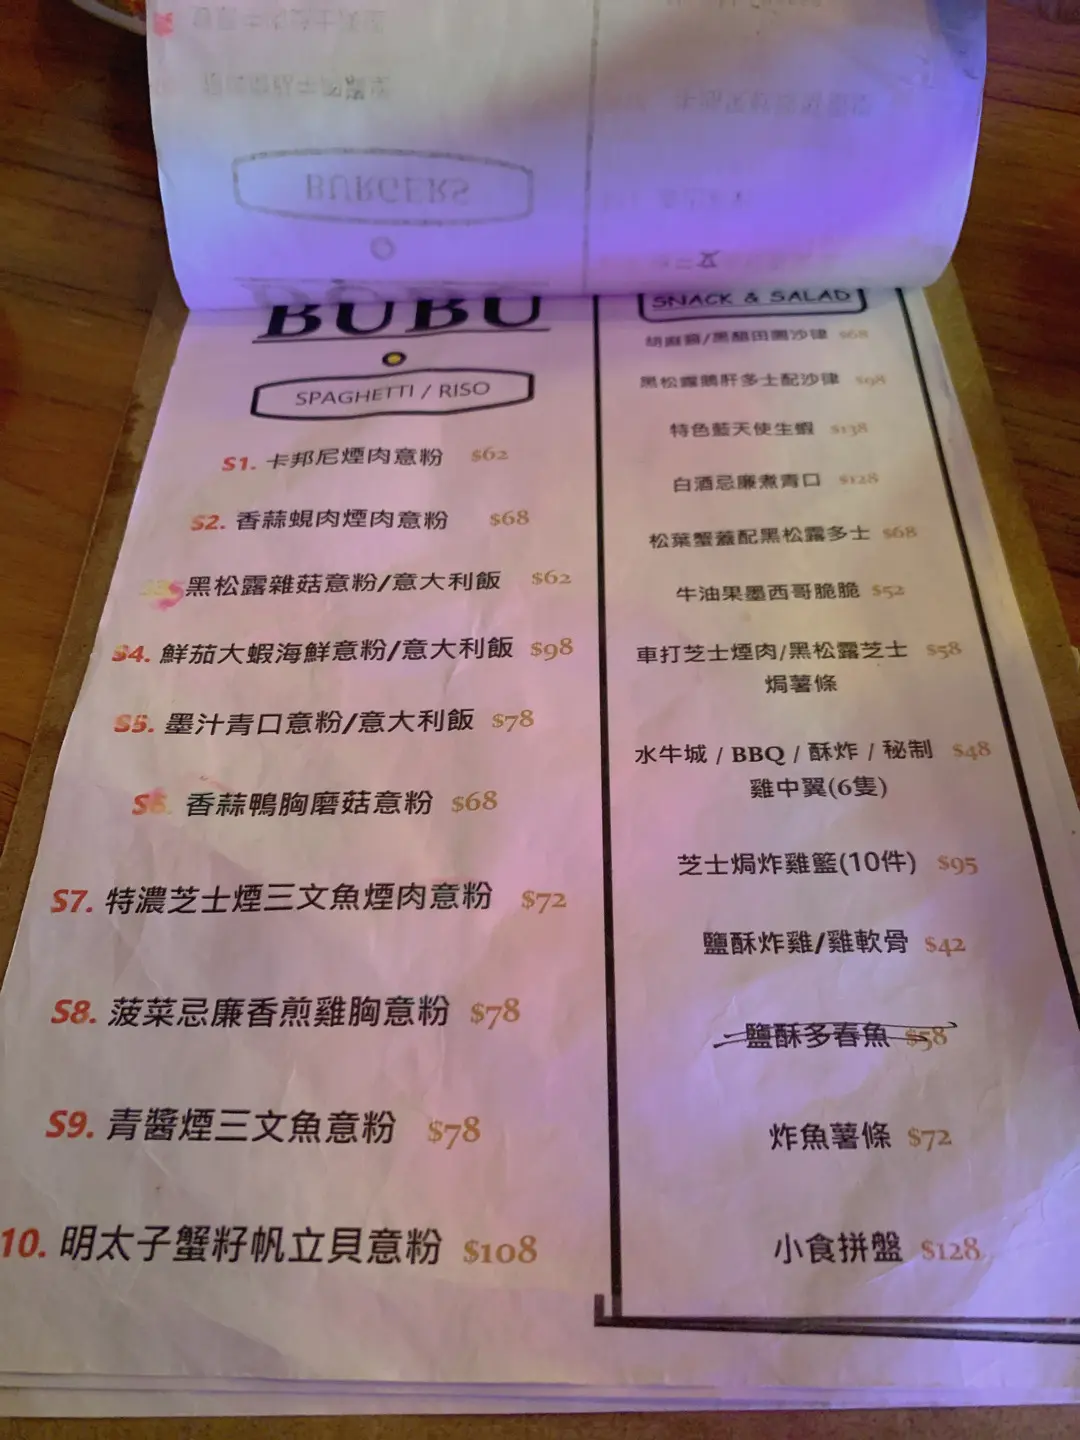 BURGERS
BUBU
SPAGHETTI / RISO
S1. 卡邦尼煙肉意粉 $62
S2. 香蒜蜆肉煙肉意粉 $68
黑松露雜菇意粉/意大利飯 $62
S4. 鮮茄大蝦海鮮意粉/意大利飯 $98
S5. 墨汁青口意粉/意大利飯 $78
S6. 香蒜鴨胸磨菇意粉 $68
S7. 特濃芝士煙三文魚煙肉意粉 $72
S8. 菠菜忌廉香煎雞胸意粉 $78
S9. 青醬煙三文魚意粉 $78
10. 明太子蟹籽帆立貝意粉 $108
SNACK & SALAD
胡麻醬/黑醋田園沙律 $68
黑松露鵝肝多士配沙律 $98
特色藍天使生蝦 $138
白酒忌廉煮青口 $128
松葉蟹蓋配黑松露多士 $68
牛油果墨西哥脆脆 $52
車打芝士煙肉/黑松露芝士 $58
焗薯條
水牛城 / BBQ / 酥炸 / 秘制 $48
雞中翼(6隻)
芝士焗炸雞籃(10件) $95
鹽酥炸雞/雞軟骨 $42
鹽酥多春魚 $58
炸魚薯條 $72
小食拼盤 $128